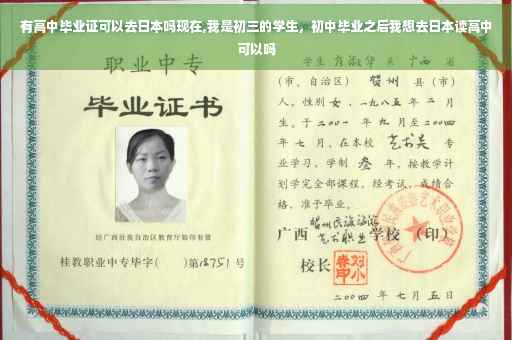 有高中毕业证可以去日本吗现在,我是初三的学生，初中毕业之后我想去日本读高中
可以吗
职业中专
毕业证书
经广西壮族自治区教育厅验印有效
桂教职业中专毕字（ ）第18751号
学生 系 广西 省
（市、自治区） 贺州 县（市）
人，性别 女，一九八五年 二 月
生。于二〇〇一年 九 月至二〇〇四
年 七 月，在本校 艺术类 专
业学习，学制 叁 年，按教学计
划学完全部课程，经考试，成绩合
格，准予毕业。
广西 贺州民族旅游艺术职业 学校（印）
校长
二〇〇四 年 七 月 五 日